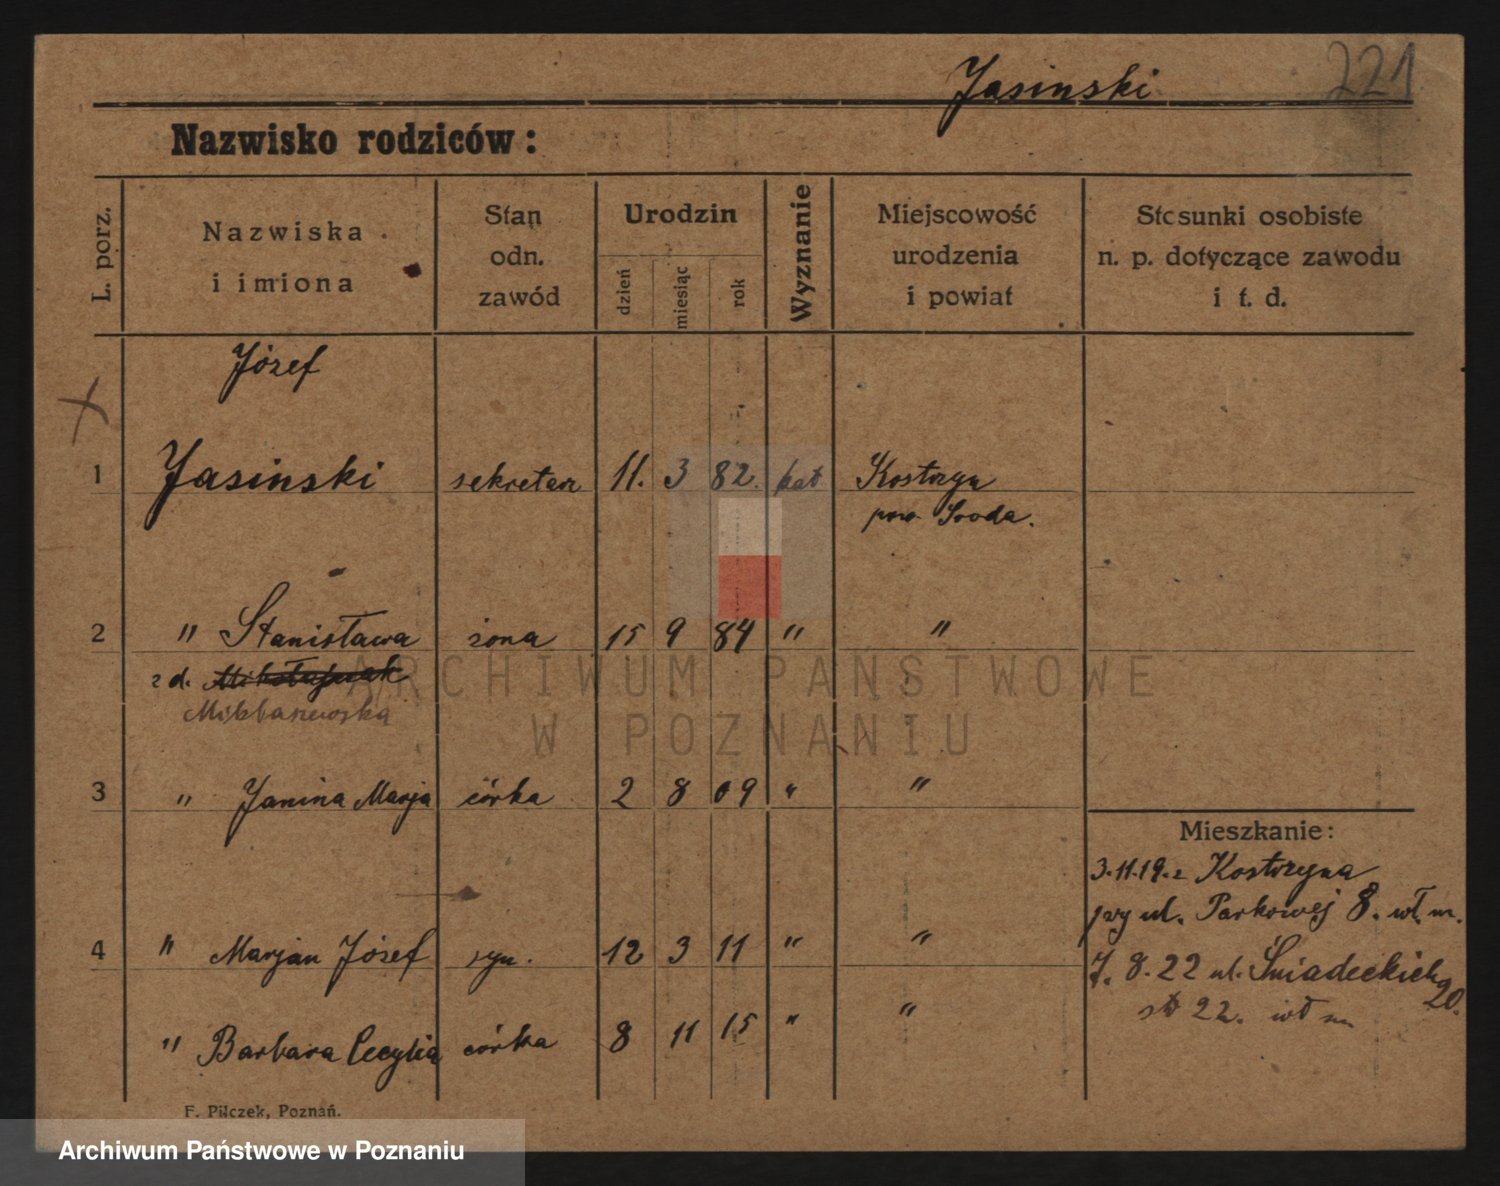 Jasinski 221
Nazwisko rodziców:
L. porz.
Nazwiska
i imiona
Stan
odn.
zawód
Urodzin
dzień
miesiąc
rok
Wyznanie
Miejscowość
urodzenia
i powiat
Stosunki osobiste
n. p. dotyczące zawodu
i t. d.
Józef
1 Jasinski sekretarz 11. 3 82. kat Kostrzyn
pow. Środa.
2 " Stanisława żona 15 9 84 " "
z d. Mikołajczak
3 " Janina Marja córka 2 8 09 " "
Mieszkanie:
3.11.19. z Kostrzyna
przy ul. Parkowej 8. wł. m.
4 " Marjan Józef syn. 12 3 11 " "
7. 8. 22 ul. Śniadeckich 20.
22. wł m
" Barbara Cecylia córka 8 11 15 " "
F. Pilczek, Poznań.
ARCHIWUM PAŃSTWOWE
W POZNANIU
Archiwum Państwowe w Poznaniu